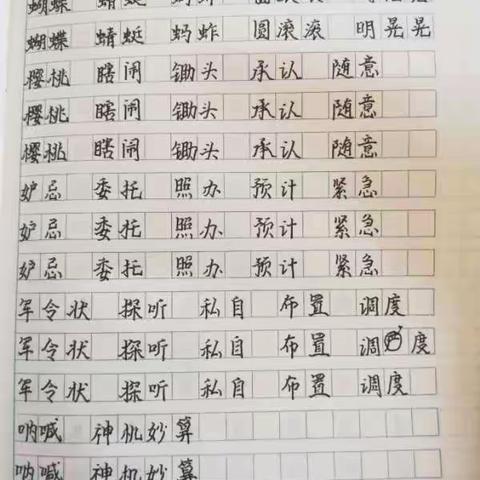 蝴蝶 蜻蜓 蚂蚱
蝴蝶 蜻蜓 蚂蚱 圆滚滚 明晃晃
樱桃 瞎闹 锄头 承认 随意
樱桃 瞎闹 锄头 承认 随意
樱桃 瞎闹 锄头 承认 随意
妒忌 委托 照办 预计 紧急
妒忌 委托 照办 预计 紧急
妒忌 委托 照办 预计 紧急
军令状 探听 私自 布置 调度
军令状 探听 私自 布置 调度
军令状 探听 私自 布置 调度
呐喊 神机妙算
呐喊 神机妙算